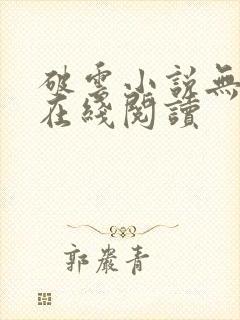 破雲小說無
在綫閱讀
郭嚴青